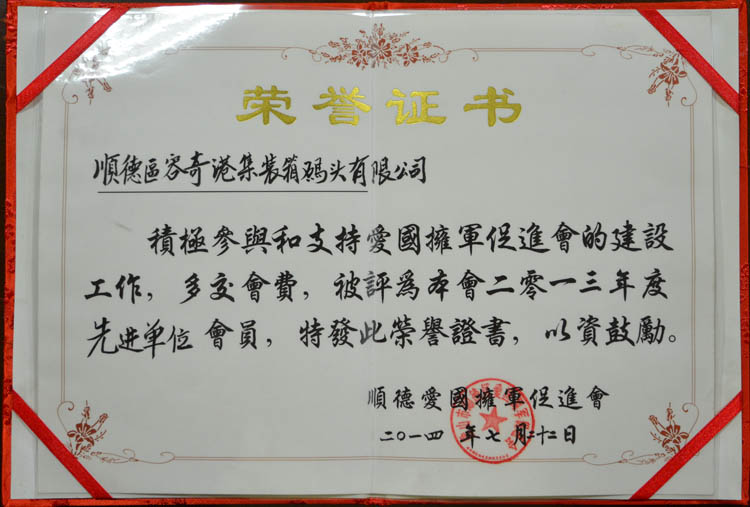 荣誉证书
順德區容奇港集裝箱碼头有限公司
積極參與和支持愛國擁軍促進會的建設
工作，多交會費，被評為本會二零一三年度
先进单位會員，特發此榮譽證書，以資鼓勵。
順德愛國擁軍促進會
二〇一四年七月二十二日